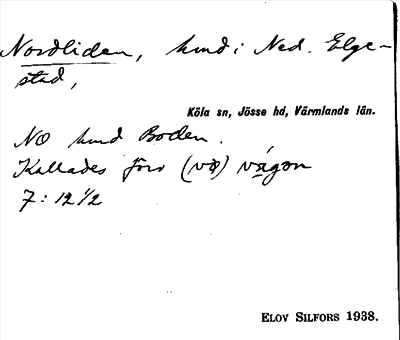 Nordliden, hmd i Ned. Elge-
stad,
Köla sn, Jösse hd, Värmlands län.
NO hmd Boden.
Kallades förr (vä) vägen
7: 12 1/2
ELOV SILFORS 1938.